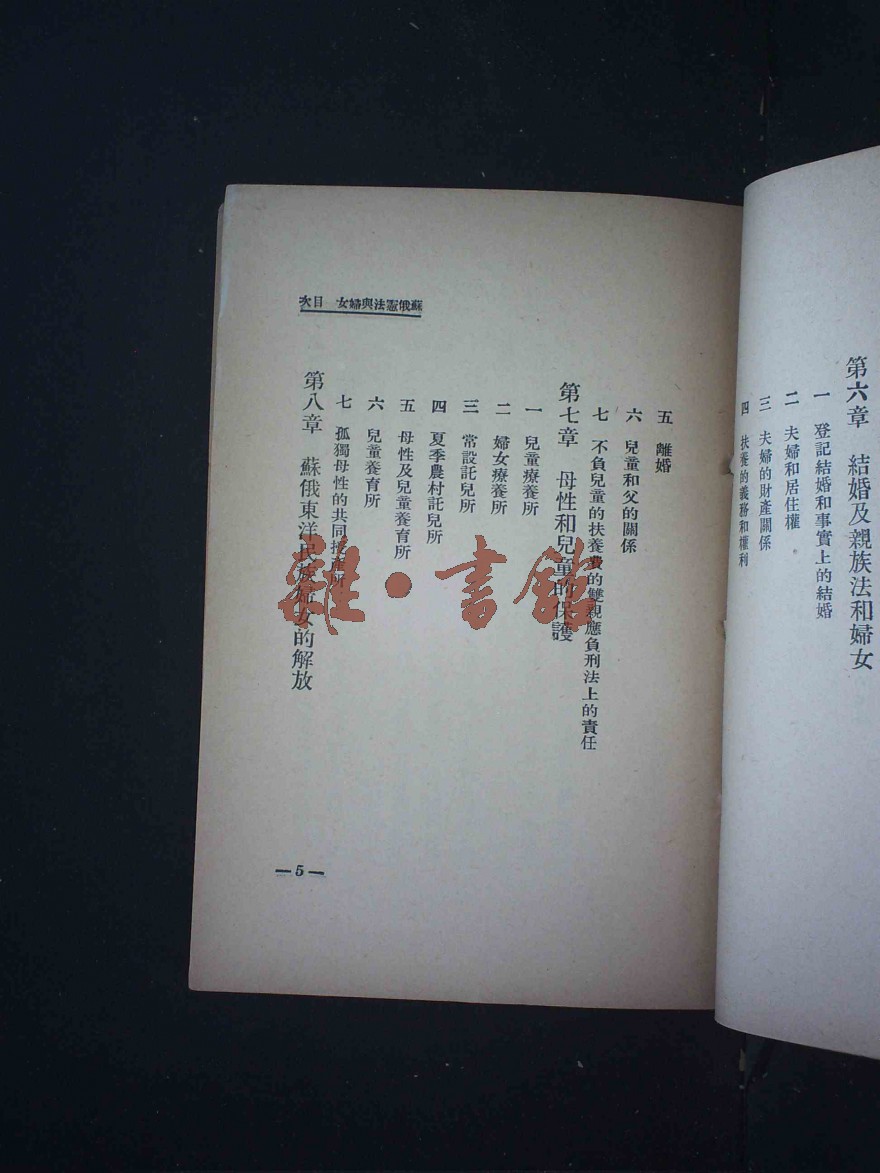 第六章 結婚及親族法和婦女
一 登記結婚和事實上的結婚
二 夫婦和居住權
三 夫婦的財產關係
四 扶養的義務和權利
蘇俄憲法與婦女 目次
五 離婚
六 兒童和父的關係
七 不負兒童的扶養費的雙親應負刑法上的責任
第七章 母性和兒童的保護
一 兒童療養所
二 婦女療養所
三 常設託兒所
四 夏季農村託兒所
五 母性及兒童養育所
六 兒童養育所
七 孤獨母性的共同 所
第八章 蘇俄東洋民族婦女的解放
—5—
雜·書館